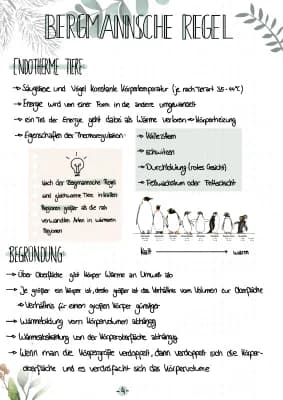 BERGMANNSCHE REGEL
ENDOTHERME TIERE
→ Säugetiere und Vögel konstante Körpertemperatur (je nach Tierart 35-44°C)
→ Energie wird von einer Form in die andere umgewandelt
→ ein Teil der Energie geht dabei als Wärme verloren → Körperheizung
→ Eigenschaften der Thermoregulation:
→ Kältezittern
→ schwitzen
→ Durchblutung (rotes Gesicht)
→ Fellwachstum oder Fettschicht
Nach der Bergmannsche Regel
sind gleichwarme Tiere in kalten
Regionen größer als die nah
verwandten Arten in wärmeren
Regionen
Kalt
warm
BEGRÜNDUNG
→ Über Oberfläche gibt Körper Wärme an Umwelt ab
→ Je größer ein Körper ist, desto größer ist das Verhältnis vom Volumen zur Oberfläche
↳ Verhältnis für einen großen Körper günstiger
→ Wärmebildung vom Körpervolumen abhängig
→ Wärmeabstrahlung von der Körperoberfläche abhängig
→ Wenn man die Körpergröße verdoppelt, dann verdoppelt sich die Körper-
oberfläche und es vervielfacht sich das Körpervolumen